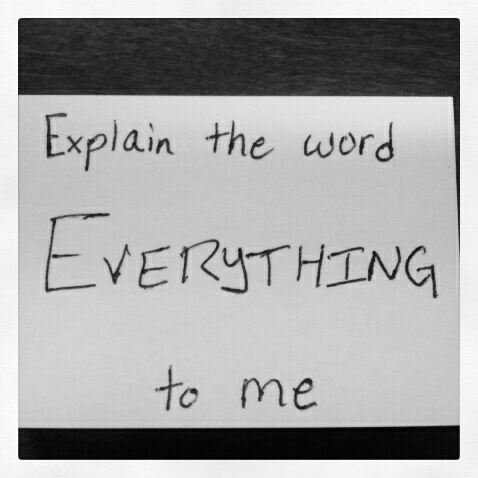 Explain the word
EVERYTHING
to me